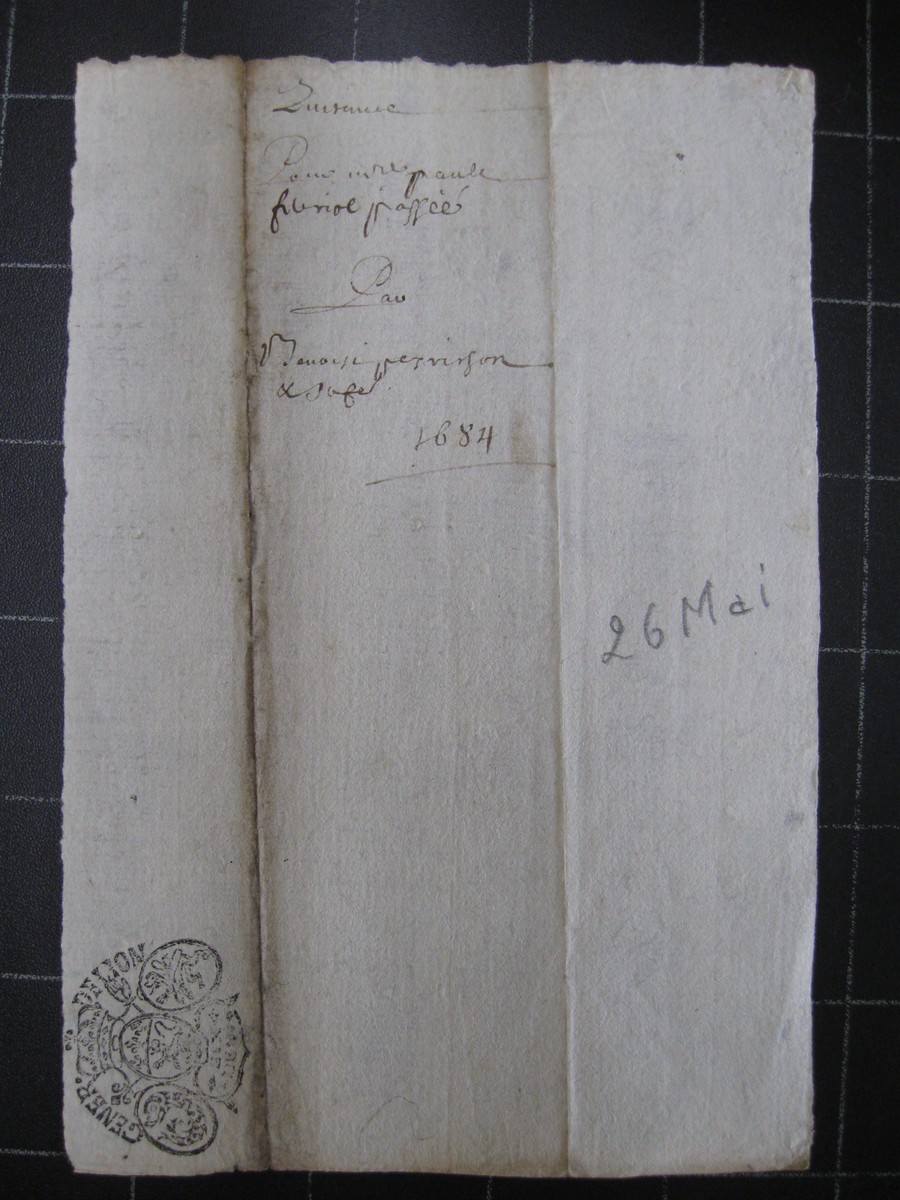 Quitance
Pour mre paule
feuriol passée
Par
Benoist perrichon
1684
26 Mai
GENER. DE LION